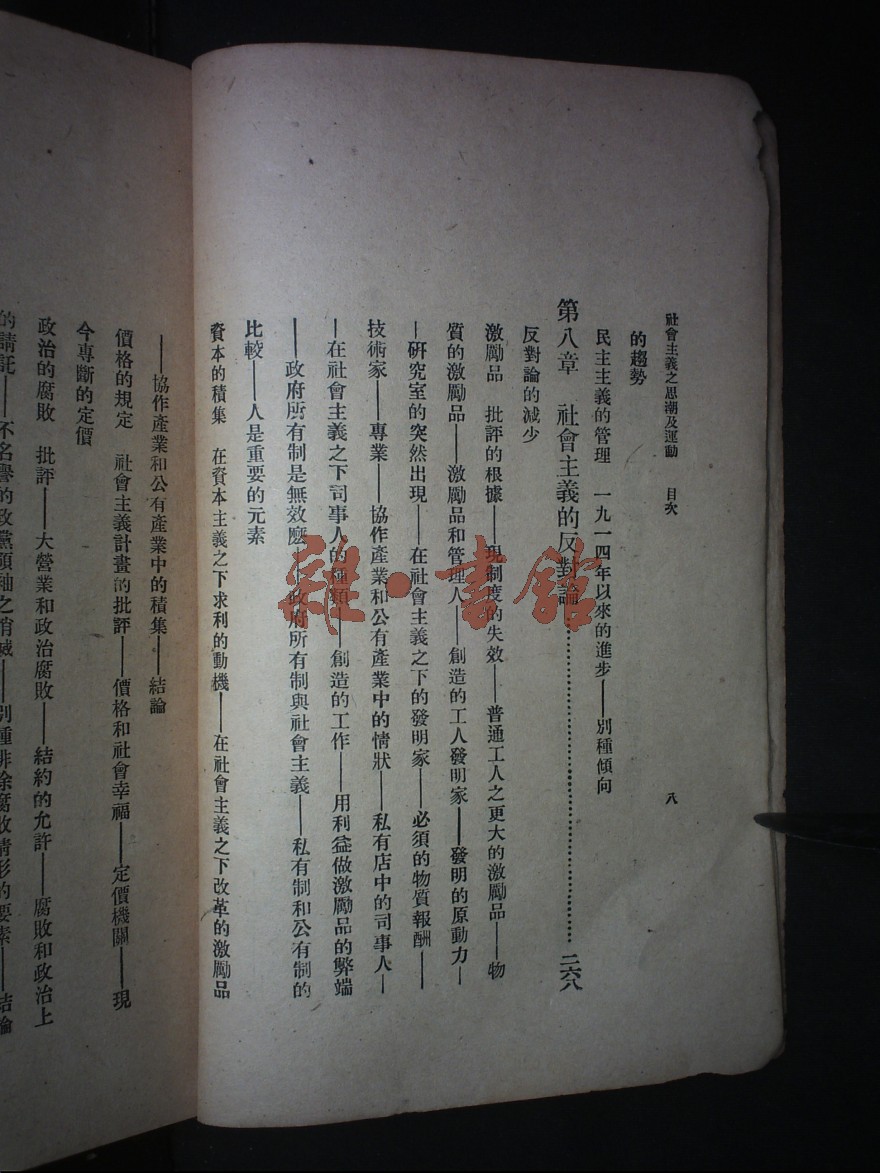 社會主義之思潮及運動　目次
八
的趨勢
民主主義的管理　一九一四年以來的進步——別種傾向
第八章　社會主義的反對論……二六八
反對論的減少
激勵品　批評的根據——現制度的失效——普通工人之更大的激勵品——物
質的激勵品——激勵品和管理人——創造的工人發明家——發明的原動力—
—研究室的突然出現——在社會主義之下的發明家——必須的物質報酬——
技術家——專業——協作產業和公有產業中的情狀——私有店中的司事人—
—在社會主義之下司事人的種類——創造的工作——用利益做激勵品的弊端
——政府所有制是無效麼——政府所有制與社會主義——私有制和公有制的
比較——人是重要的元素
資本的積集　在資本主義之下求利的動機——在社會主義之下改革的激勵品
——協作產業和公有產業中的積集——結論
價格的規定　社會主義計畫的批評——價格和社會幸福——定價機關——現
今專斷的定價
政治的腐敗　批評——大營業和政治腐敗——結約的允許——腐敗和政治上
的請託——不名譽的政黨領袖之消滅——別種排除腐敗情形的要素——結論
雜·書館